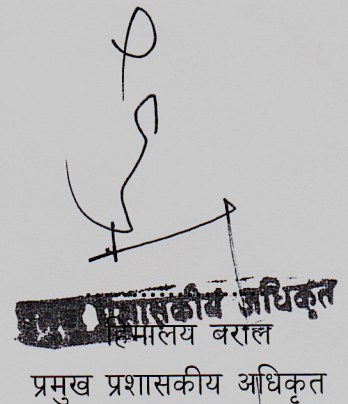 प्रशासकीय अधिकृत
हिमालय बराल
प्रमुख प्रशासकीय अधिकृत